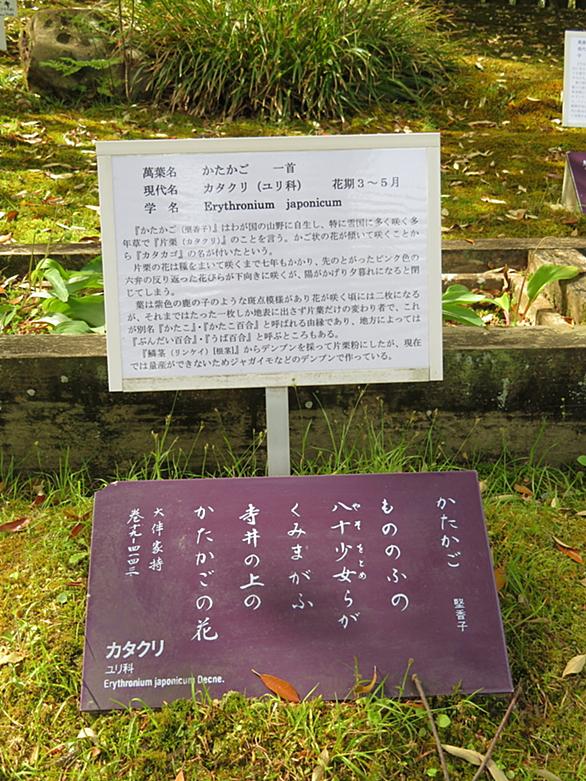 萬葉名　かたかご　一首
現代名　カタクリ（ユリ科）　花期３～５月
学　名　Erythronium japonicum
『かたかご（堅香子）』はわが国の山野に自生し、特に雪国に多く咲く多
年草で『片栗（カタクリ）』のことを言う。かご状の花が傾いて咲くことか
ら『カタカゴ』の名が付いたという。
片栗の花は種をまいて咲くまで七年もかかり、先のとがったピンク色の
六弁の反り返った花びらが下向きに咲くが、陽がかげり夕暮れになると閉
じてしまう。
葉は紫色の鹿の子のような斑点模様があり花が咲く頃には二枚になる
が、それまではたった一枚しか地表に出さず片葉だけの変わり者で、これ
が別名『かたこ』・『かたこ百合』と呼ばれる由縁であり、地方によっては
『ぶんだい百合』・『うば百合』と呼ぶところもある。
『鱗茎（リンケイ）［根茎］』からデンプンを採って片栗粉にしたが、現在
では量産ができないためジャガイモなどのデンプンで作っている。
かたかご　堅香子
もののふの
八十少女らが
やそをとめ
くみまがふ
寺井の上の
かたかごの花
大伴家持
巻十九ー四一四三
カタクリ
ユリ科
Erythronium japonicum Decne.